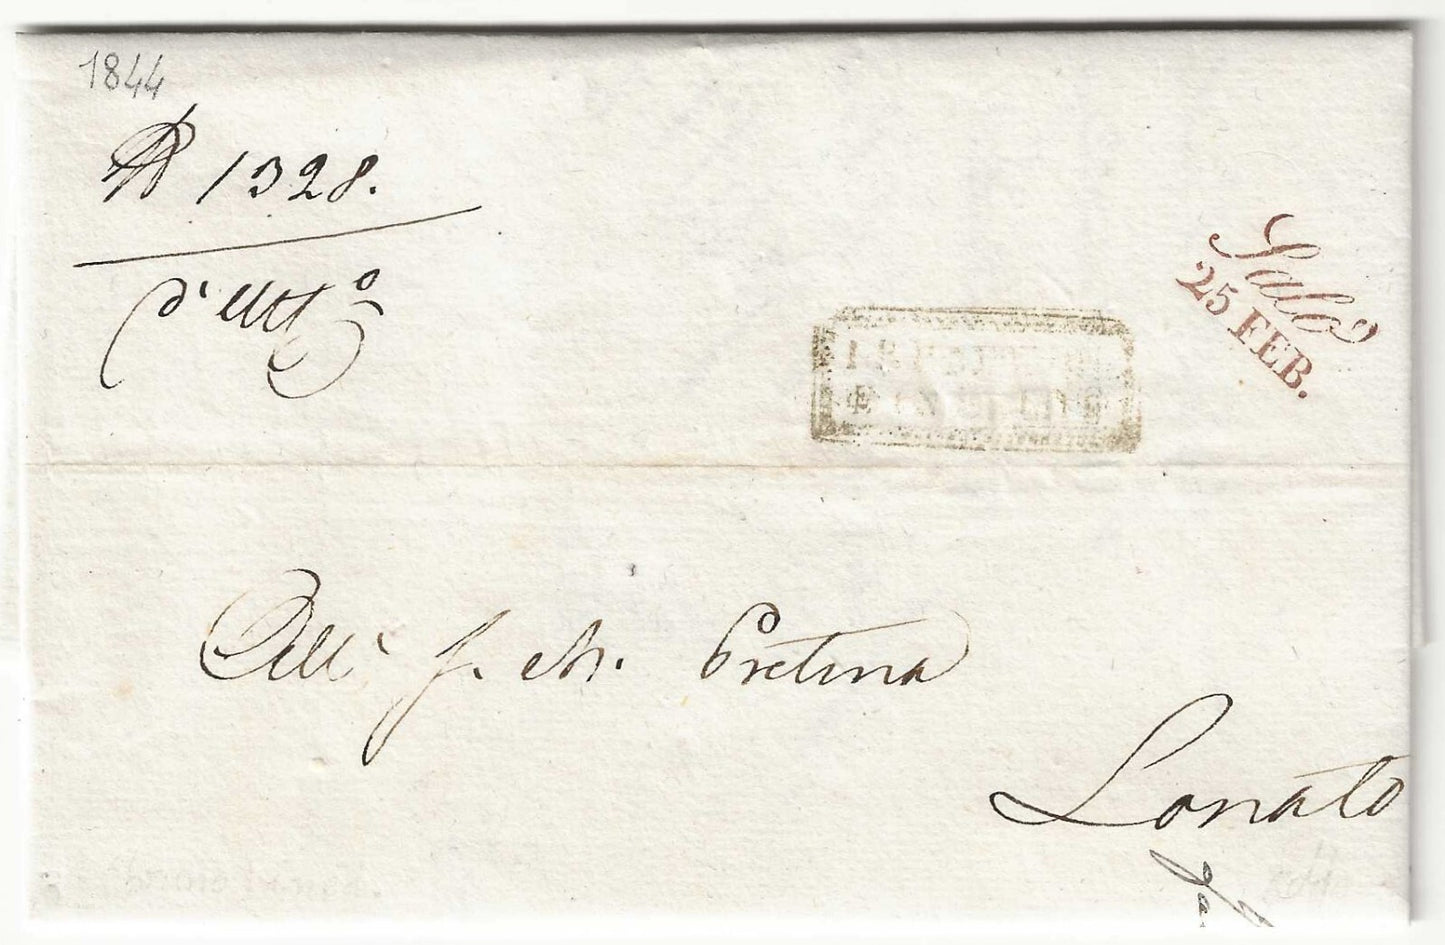 1844
N 1328.
d'Uff.o
Salò
25 FEB.
All' I. R. Pretura
Lonato